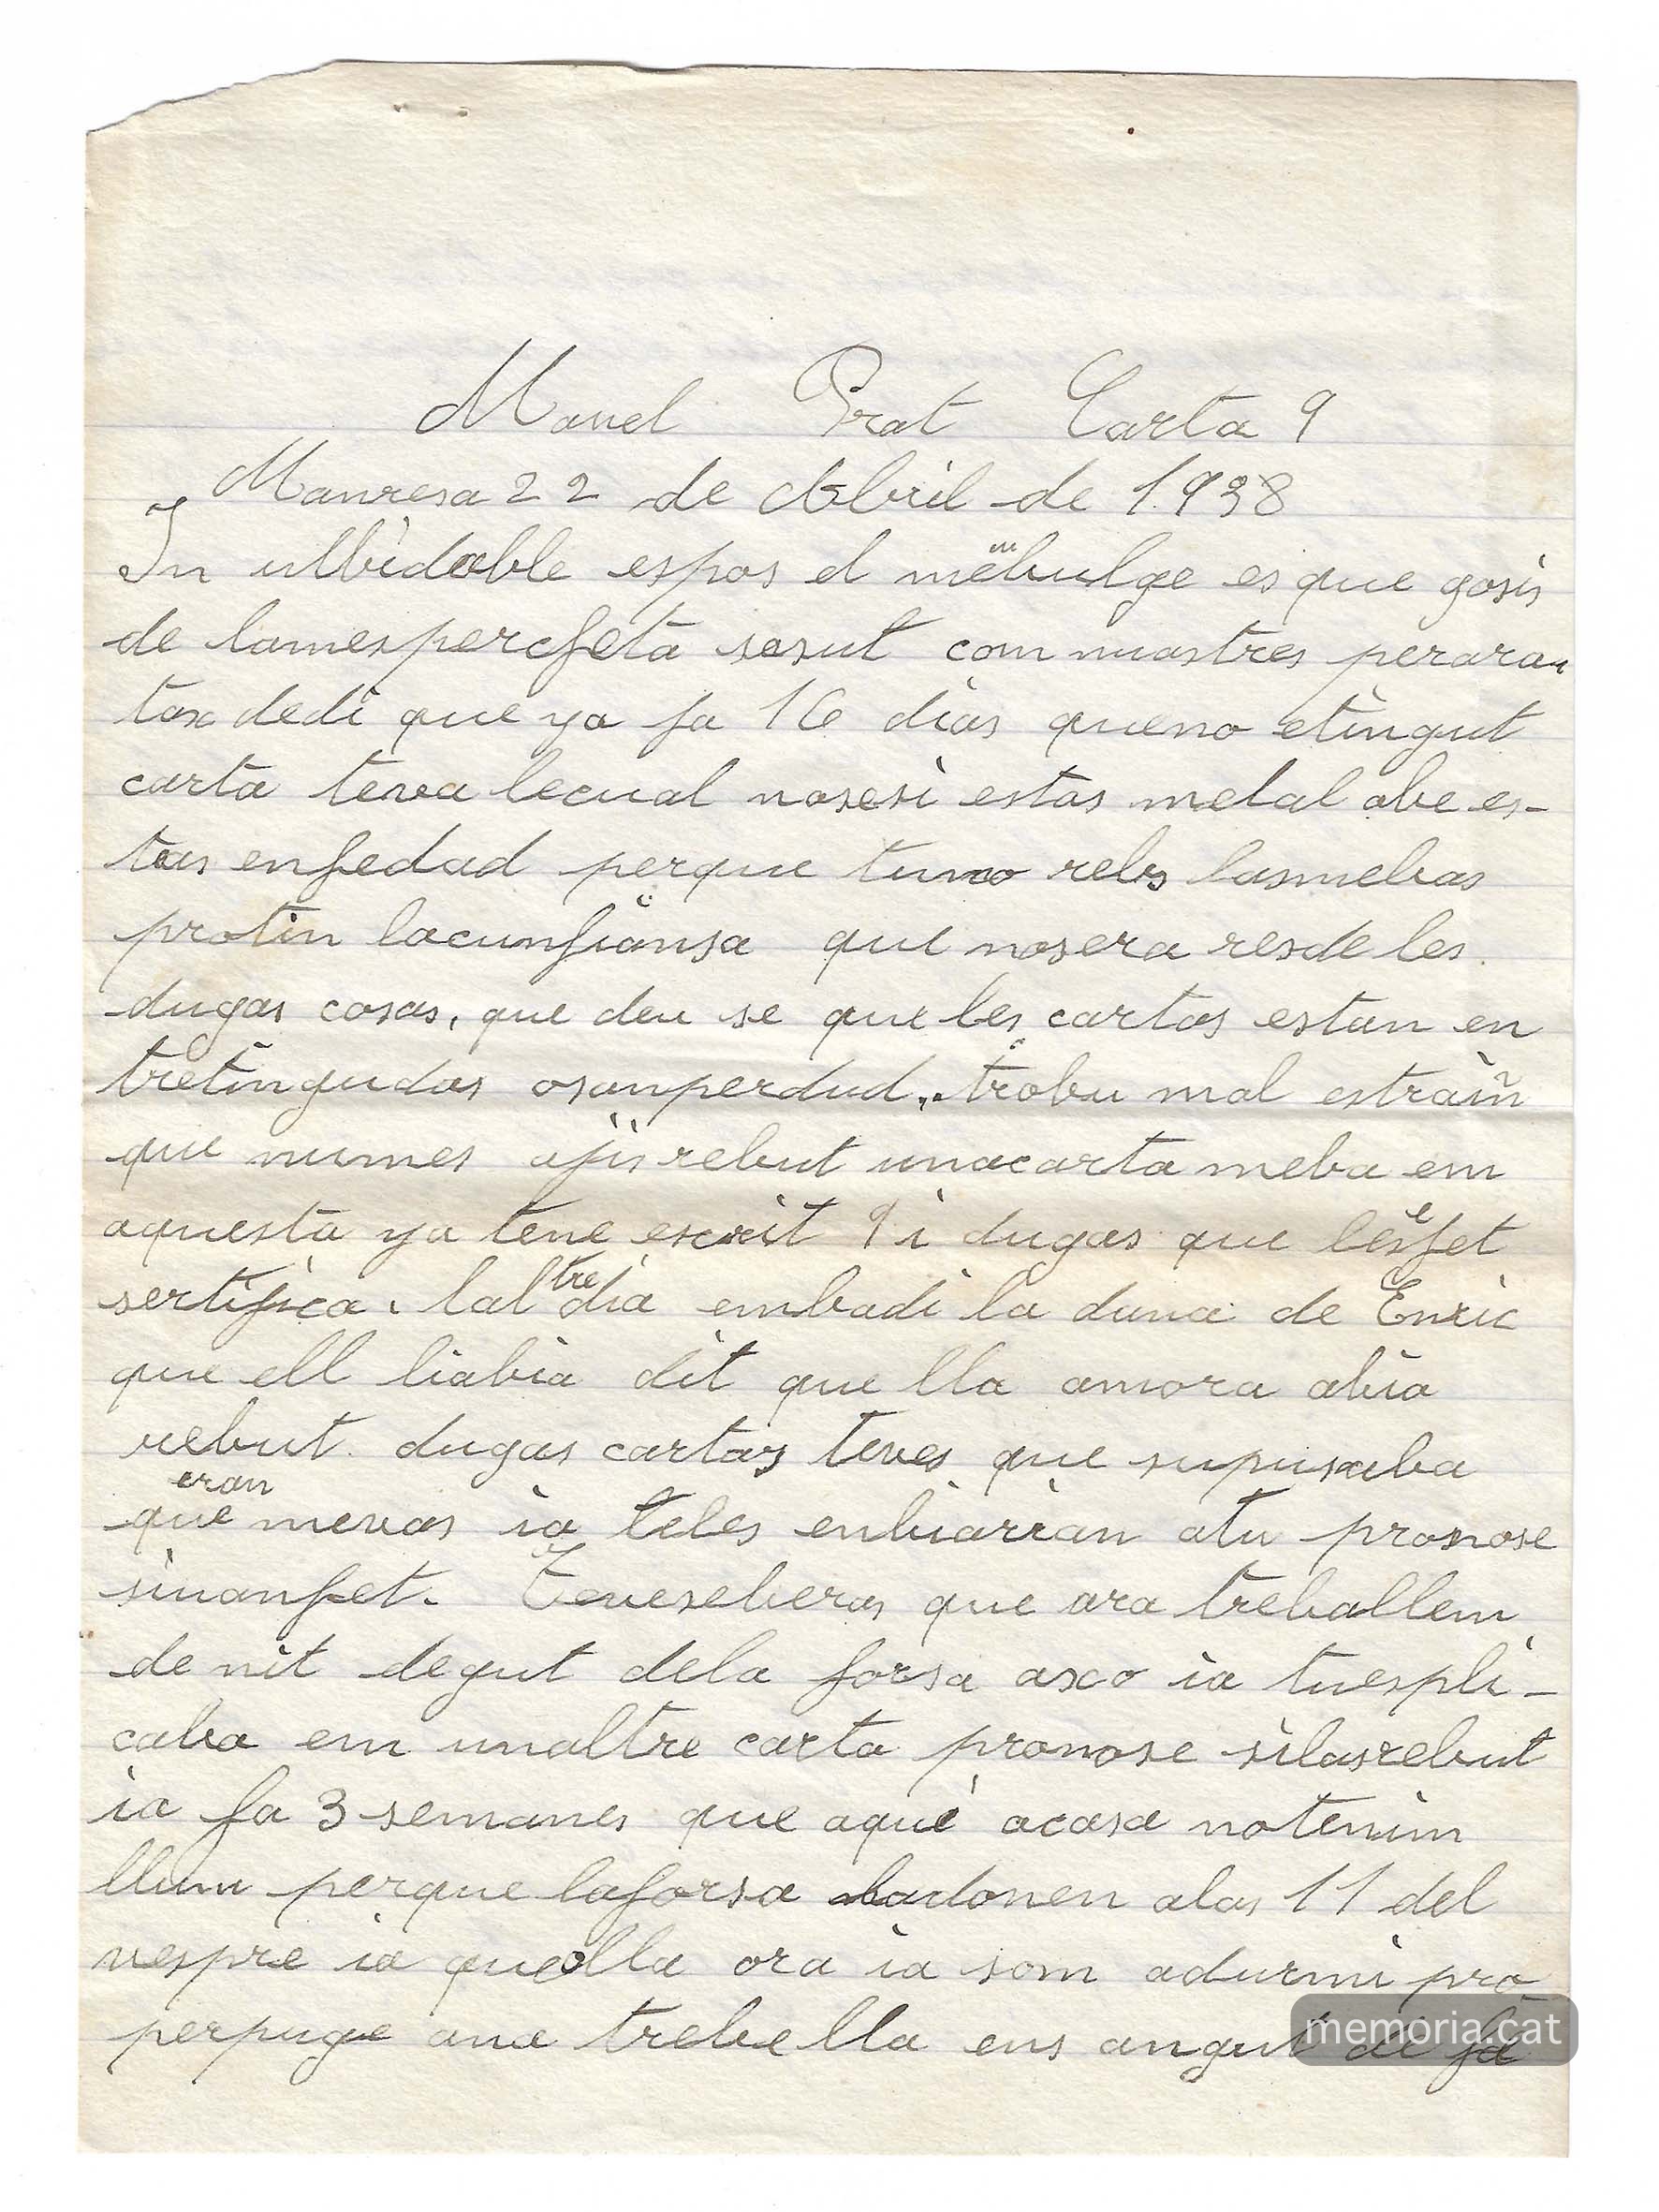 Manel Prat Carta 9
Manresa 22 de Abril de 1.938
In ulbidable espos el meu bulge es que gosis
de lamesperfeta sasut com nuastres peraran
tax dedi que ya fa 16 dias queno etingut
carta teva lecual nosesi estas melal obe es-
tas enfedad perque tuno rebs lasmebas
protin lacunfiansa que nosera resde les
dugas cosas, que deu se que les cartas estan en
tretingudas osanperdud,. trobu mal estrañ
que numes ajis rebut unacarta meba em
aquesta ya tene escrit 9 i dugas que les e fet
sertifica. laltre dia embadi la duna de Enric
que ell liabia dit que lla amora abia
rebut. dugas cartas teves que supusaba
que eran mevas ia teles enbiarian atu pronose
siuanfet. Teueseberas que ara treballem
de nit degut dela forsa axo ia tuespli-
caba em unaltre carta pronose silasrebut
ia fa 3 semanes que aqui acasa notenim
llum perque laforsa ladonen alas 11 del
vespre ia quella ora ia som adurmi pro
perpuge ana trebella ens angut de fe
memoria.cat